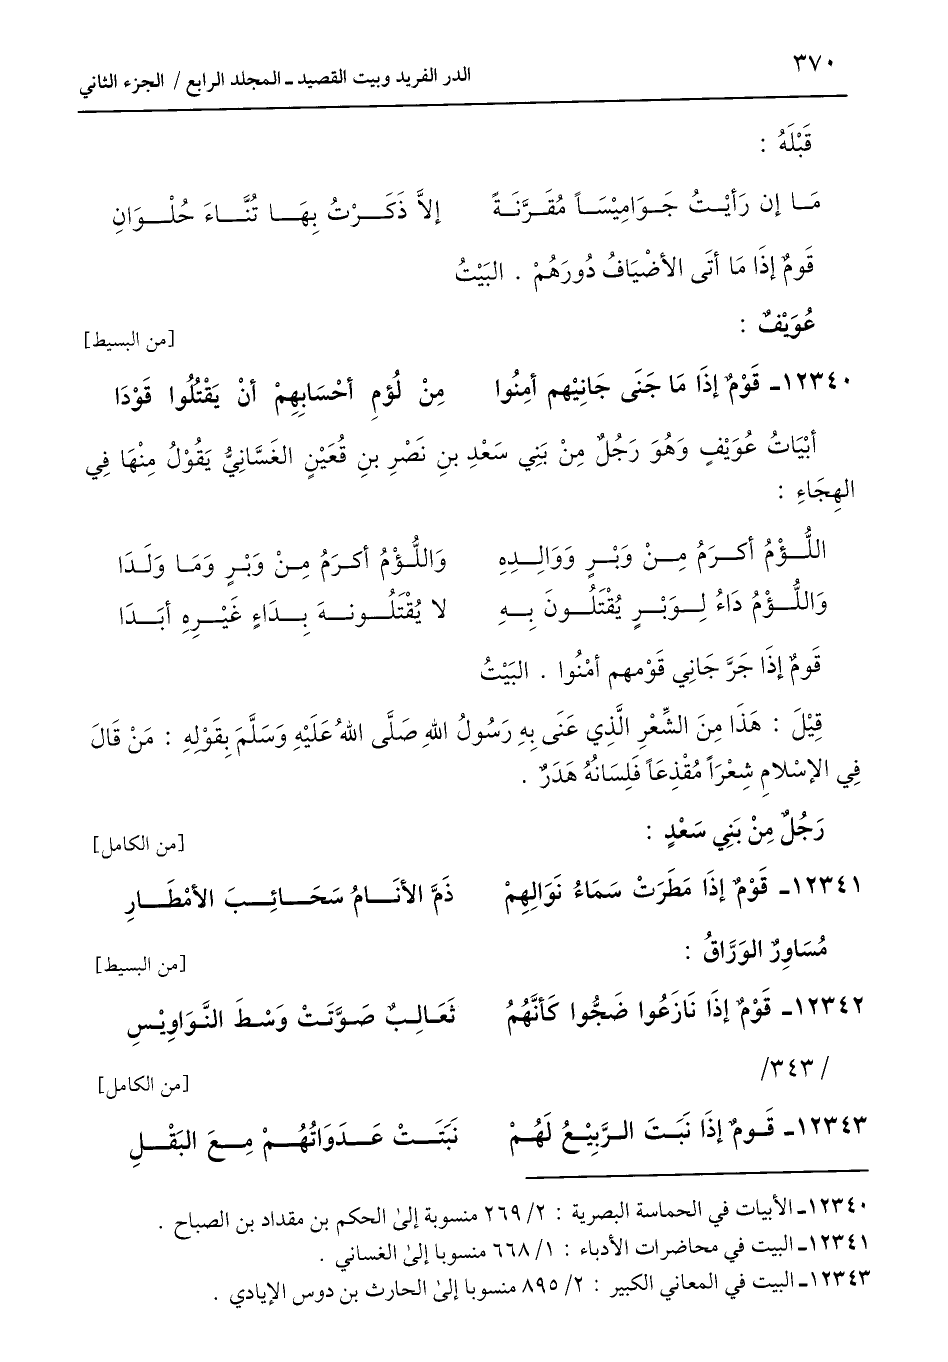 ٣٧٠
الدر الفريد وبيت القصيد ـ المجلد الرابع / الجزء الثاني
قَبْلَهُ :
مَـا إن رَأيْـتُ جَـوَامِيْسَـاً مُقَـرَّنَـةً إلاَّ ذَكَـرْتُ بِهَـا تُنَّـاءَ حُلْـوَانِ
قَومٌ إذَا مَا أتَى الأضْيَافُ دُورَهُمْ . البَيْتُ
عُوَيْفٌ :
[من البسيط]
١٢٣٤٠ـ قَوْمٌ إذَا مَا جَنَى جَانِيْهم أمِنُوا مِنْ لُؤمِ أحْسَابِهِمْ أنْ يَقْتُلُوا قَوْدَا
أبْيَاتُ عُوَيْفٍ وَهُوَ رَجُلٌ مِنْ بَنِي سَعْدِ بنِ نَصْرِ بنِ قُعَيْنٍ الغَسَّانِيُّ يَقُوْلُ مِنْهَا فِي
الهِجَاءِ :
اللُّـؤْمُ أكـرَمُ مِـنْ وَبْـرٍ وَوَالِـدِهِ وَاللُّـؤْمُ أكـرَمُ مِـنْ وَبْـرٍ وَمَـا وَلَـدَا
وَاللُّـؤْمُ دَاءُ لِـوَبْـرٍ يُقْتَلُـونَ بِـهِ لا يُقْتَلُـونـهَ بِـدَاءٍ غَيْـرِهِ أبَـدَا
قَومٌ إذَا جَرَّ جَانِي قَوْمهم أمْنُوا . البَيْتُ
قِيْلَ : هَذَا مِنَ الشِّعْرِ الَّذِي عَنَى بِهِ رَسُولُ اللهِ صَلَّى اللهُ عَلَيْهِ وَسَلَّمَ بِقَوْلِهِ : مَنْ قَالَ
فِي الإسْلامِ شِعْرَاً مُقْذِعَاً فَلِسَانُهُ هَدَرٌ .
رَجُلٌ مِنْ بَنِي سَعْدٍ :
[من الكامل]
١٢٣٤١ـ قَوْمٌ إذَا مَطَرَتْ سَمَاءُ نَوَالِهِمْ ذَمَّ الأنَـامُ سَحَـائِـبَ الأمْطَـارِ
مُسَاوِرٌ الوَرَّاقُ :
[من البسيط]
١٢٣٤٢ـ قَوْمٌ إذَا نَازَعُوا ضَجُّوا كَأنَّهُمُ ثَعَـالِـبٌ صَوَّتَـتْ وَسْـطَ النَّـوَاوِيْـسِ
/ ٣٤٣/
[من الكامل]
١٢٣٤٣ـ قَـومٌ إذَا نَبَتَ الـرَّبِيْـعُ لَهُـمْ نَبَتَـتْ عَـدَوَاتُهُـمْ مِـعَ البَقْـلِ
١٢٣٤٠ـ الأبيات في الحماسة البصرية : ٢/ ٢٦٩ منسوبة إلىٰ الحكم بن مقداد بن الصباح .
١٢٣٤١ـ البيت في محاضرات الأدباء : ١/ ٦٦٨ منسوبا إلىٰ الغساني .
١٢٣٤٣ـ البيت في المعاني الكبير : ٢/ ٨٩٥ منسوبا إلىٰ الحارث بن دوس الإيادي .